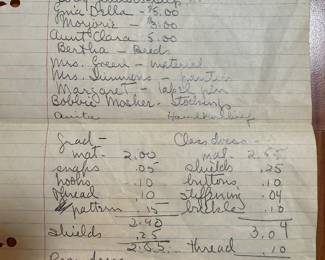 Gma Della - $5.00
Marjorie - $1.00
Aunt Clara 5.00
Bertha - Beads
Mrs. Green - material
Mrs. Simmons -
Margaret - lapel pin
Bobbie Mosher - stockings
Handkerchief
Grad- Class dress -
mat. 2.00 mat. 2.55
snaps .05 shields .25
hooks .10 buttons .10
thread .10 stiffening .04
pattern .15 buckles .10
2.40 3.04
shields .25 thread .10
2.65